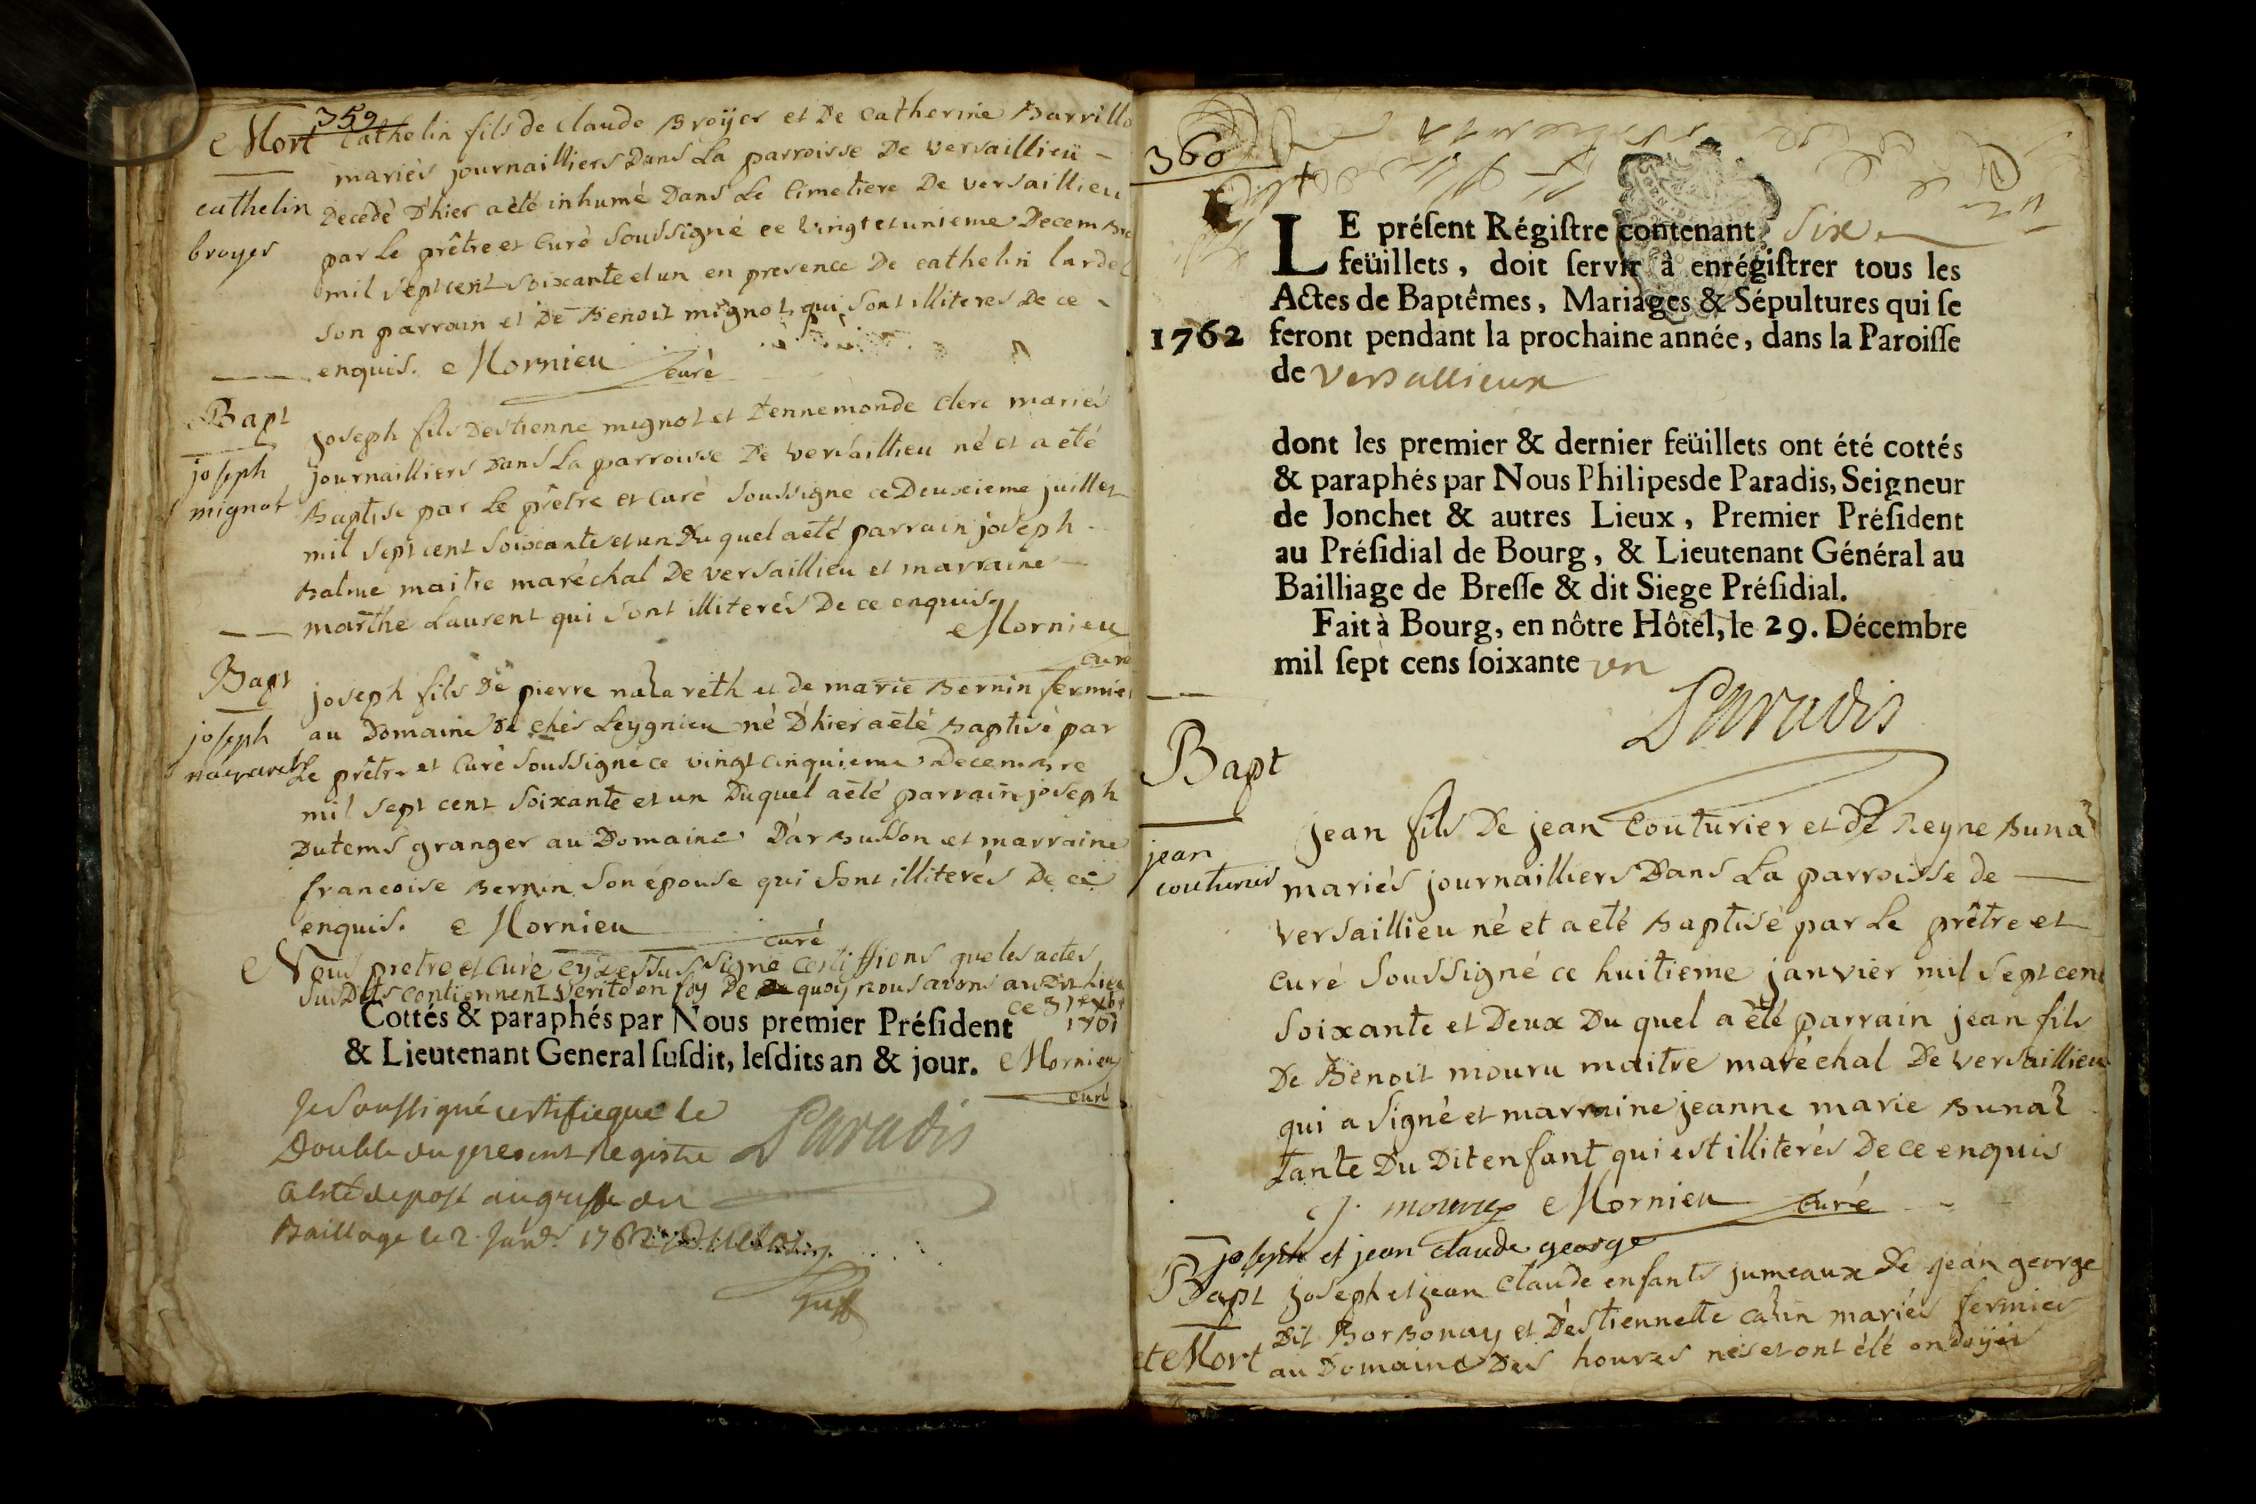 359
Mort
cathelin
broyer
Cathelin fils de claude Broÿer et De catherine Barrillo
mariés journailliers Dans La parroisse De Versaillieu
Decedé D'hier a été inhumé Dans Le Cimetiere De versaillieu
par Le prêtre et Curé Soussigné ce vingt et unieme Decembre
mil sept cent soixante et un en presence De cathelin lardet
son parrain et De Benoit mignot qui sont illiterés De ce
enquis. Mornieu curé
Bapt
joseph
mignot
joseph fils Destienne mignot et Dennemonde Clerc mariés
journailliers Dans La parroisse De Versaillieu né et a été
Baptisé par Le prêtre et Curé Soussigné ce Deuxieme juillet
mil sept cent soixante et un Du quel a été parrain joseph
Balme maitre maréchal De versaillieu et marraine
marthe Laurent qui sont illiterés De ce enquis.
Mornieu
curé
Bapt
joseph
nazareth
joseph fils De pierre nazareth et de marie Bernin fermier
au Domaine de chés Leygnieu né D'hier a été Baptisé par
Le prêtre et Curé Soussigné ce vingt cinquieme Decembre
mil sept cent soixante et un Duquel a été parrain joseph
Dutems granger au Domaine D'arBusson et marraine
francoise Bernin son épouse qui sont illiterés De ce
enquis. Mornieu
curé
Nous pretre et curé cy dessus signé certiffions que les actes
susDits contiennent verité en foy De quoy nous avons auDit Lieu
ce 31 xbre
1761
Cottés & paraphés par Nous premier Préſident
& Lieutenant General ſuſdit, leſdits an & jour.
Mornieu
curé
Je Soussigné certifie que le
Double du present Registre
a esté deposé au greffe du
Baillage le 2 Janvr. 1762
Paradis
360
LE préſent Régiſtre contenant Six
feüillets, doit ſervir à enrégiſtrer tous les
Actes de Baptêmes, Mariages & Sépultures qui ſe
1762 feront pendant la prochaine année, dans la Paroiſſe
de Versallieux
dont les premier & dernier feüillets ont été cottés
& paraphés par Nous Philipesde Paradis, Seigneur
de Jonchet & autres Lieux, Premier Préſident
au Préſidial de Bourg, & Lieutenant Général au
Bailliage de Breſſe & dit Siege Préſidial.
Fait à Bourg, en nôtre Hôtel, le 29. Décembre
mil ſept cens ſoixante un
Paradis
Bapt
jean
couturier
jean fils De jean Couturier et de Reyne Bunaz
mariés journailliers Dans La parroisse de
versaillieu né et a eté Baptisé par Le prêtre et
curé Soussigné ce huitieme janvier mil sept cent
soixante et Deux Du quel a été parrain jean fils
De Benoit mouru maitre maréchal De versaillieu
qui a signé et marraine jeanne marie Bunaz
tante Du Dit enfant qui est illiterés De ce enquis
J. mouru Mornieu curé
joseph et jean claude george
Bapt
et Mort
joseph et jean Claude enfants jumeaux De jean george
Dit BorBonay et D'estiennette cazin mariés fermier
au Domaine Des houres nés et ont été ondoÿés